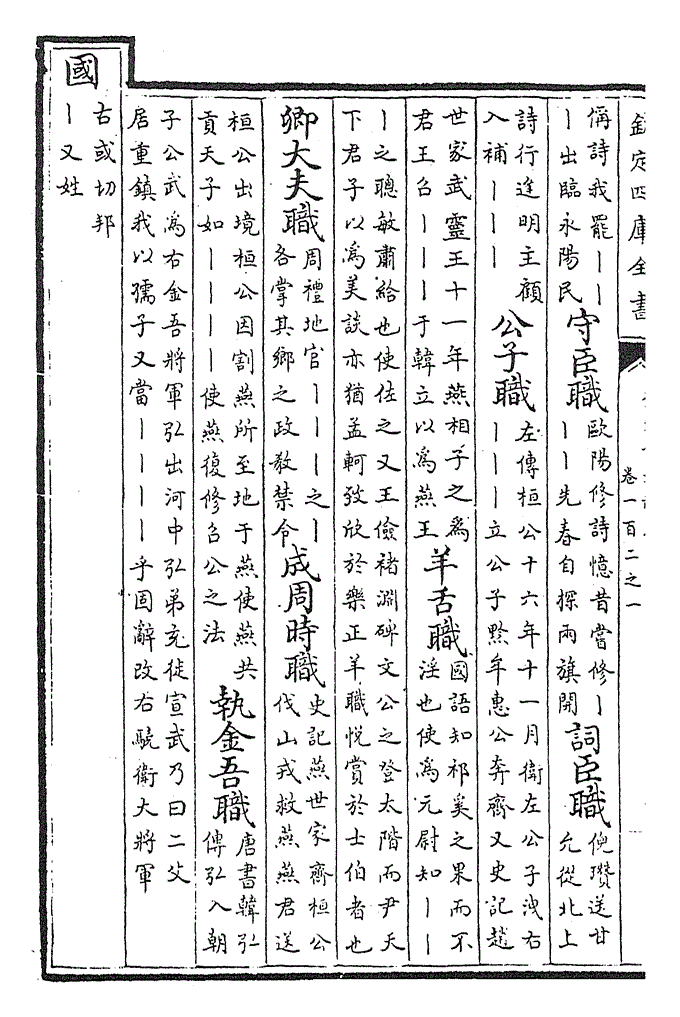 欽定四庫全書
卷一百二之一
偁詩我罷〡〡
〡出臨永陽民
守臣職
歐陽修詩憶昔嘗修〡
〡〡先春自探兩旗開
詞臣職
倪瓚送甘
允從北上
詩行逢明主顧
入補〡〡〡
公子職
左傳桓公十六年十一月衛左公子洩右
〡〡〡立公子黔牟惠公奔齊又史記趙
世家武靈王十一年燕相子之爲
君王召〡〡〡于韓立以爲燕王
羊舌職
國語知祁奚之果而不
淫也使爲元尉知〡〡
〡之聰敏肅給也使佐之又王儉褚淵碑文公之登太階而尹天
下君子以爲美談亦猶孟軻致欣於樂正羊職悅賞於士伯者也
卿大夫職
周禮地官〡〡〡〡之〡
各掌其鄉之政教禁令
成周時職
史記燕世家齊桓公
伐山戎救燕燕君送
桓公出境桓公因割燕所至地于燕使燕共
貢天子如〡〡〡〡使燕復修召公之法
執金吾職
唐書韓弘
傳弘入朝
子公武爲右金吾將軍弘出河中弘弟充徙宣武乃曰二父
居重鎮我以孺子又當〡〡〡〡乎固辭改右驍衛大將軍
國
古或切邦
〡又姓